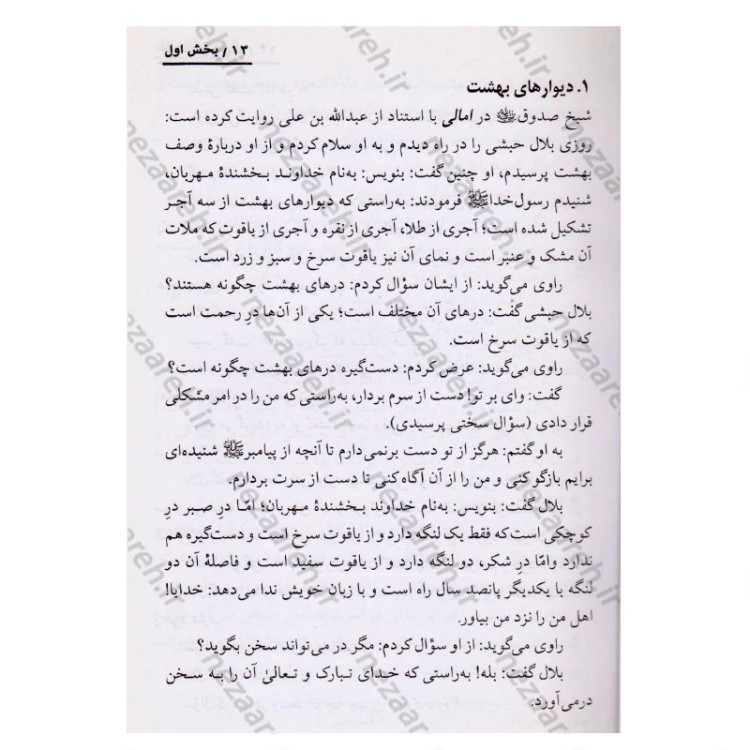 ۱۳ / بخش اول
۱. دیوارهای بهشت
شیخ صدوق در امالی با استناد از عبدالله بن علی روایت کرده است:
روزی بلال حبشی را در راه دیدم و به او سلام کردم و از او دربارهٔ وصف
بهشت پرسیدم، او چنین گفت: بنویس: به‌نام خداوند بخشندهٔ مهربان،
شنیدم رسول‌خداﷺ فرمودند: به‌راستی که دیوارهای بهشت از سه آجر
تشکیل شده است؛ آجری از طلا، آجری از نقره و آجری از یاقوت که ملات
آن مشک و عنبر است و نمای آن نیز یاقوت سرخ و سبز و زرد است.
راوی می‌گوید: از ایشان سؤال کردم: درهای بهشت چگونه هستند؟
بلال حبشی گفت: درهای آن مختلف است؛ یکی از آن‌ها درِ رحمت است
که از یاقوت سرخ است.
راوی می‌گوید: عرض کردم: دست‌گیره درهای بهشت چگونه است؟
گفت: وای بر تو! دست از سرم بردار، به‌راستی که من را در امر مشکلی
قرار دادی (سؤال سختی پرسیدی).
به او گفتم: هرگز از تو دست برنمی‌دارم تا آنچه از پیامبرﷺ شنیده‌ای
برایم بازگو کنی و من را از آن آگاه کنی تا دست از سرت بردارم.
بلال گفت: بنویس: به‌نام خداوند بخشندهٔ مهربان؛ امّا درِ صبر درِ
کوچکی است که فقط یک لنگه دارد و از یاقوت سرخ است و دست‌گیره هم
ندارد وامّا درِ شکر، دو لنگه دارد و از یاقوت سفید است و فاصلهٔ آن دو
لنگه با یکدیگر پانصد سال راه است و با زبان خویش ندا می‌دهد: خدایا!
اهل من را نزد من بیاور.
راوی می‌گوید: از او سؤال کردم: مگر در می‌تواند سخن بگوید؟
بلال گفت: بله! به‌راستی که خدای تبارک و تعالیٰ آن را به سخن
درمی‌آورد.
nezaareh.ir